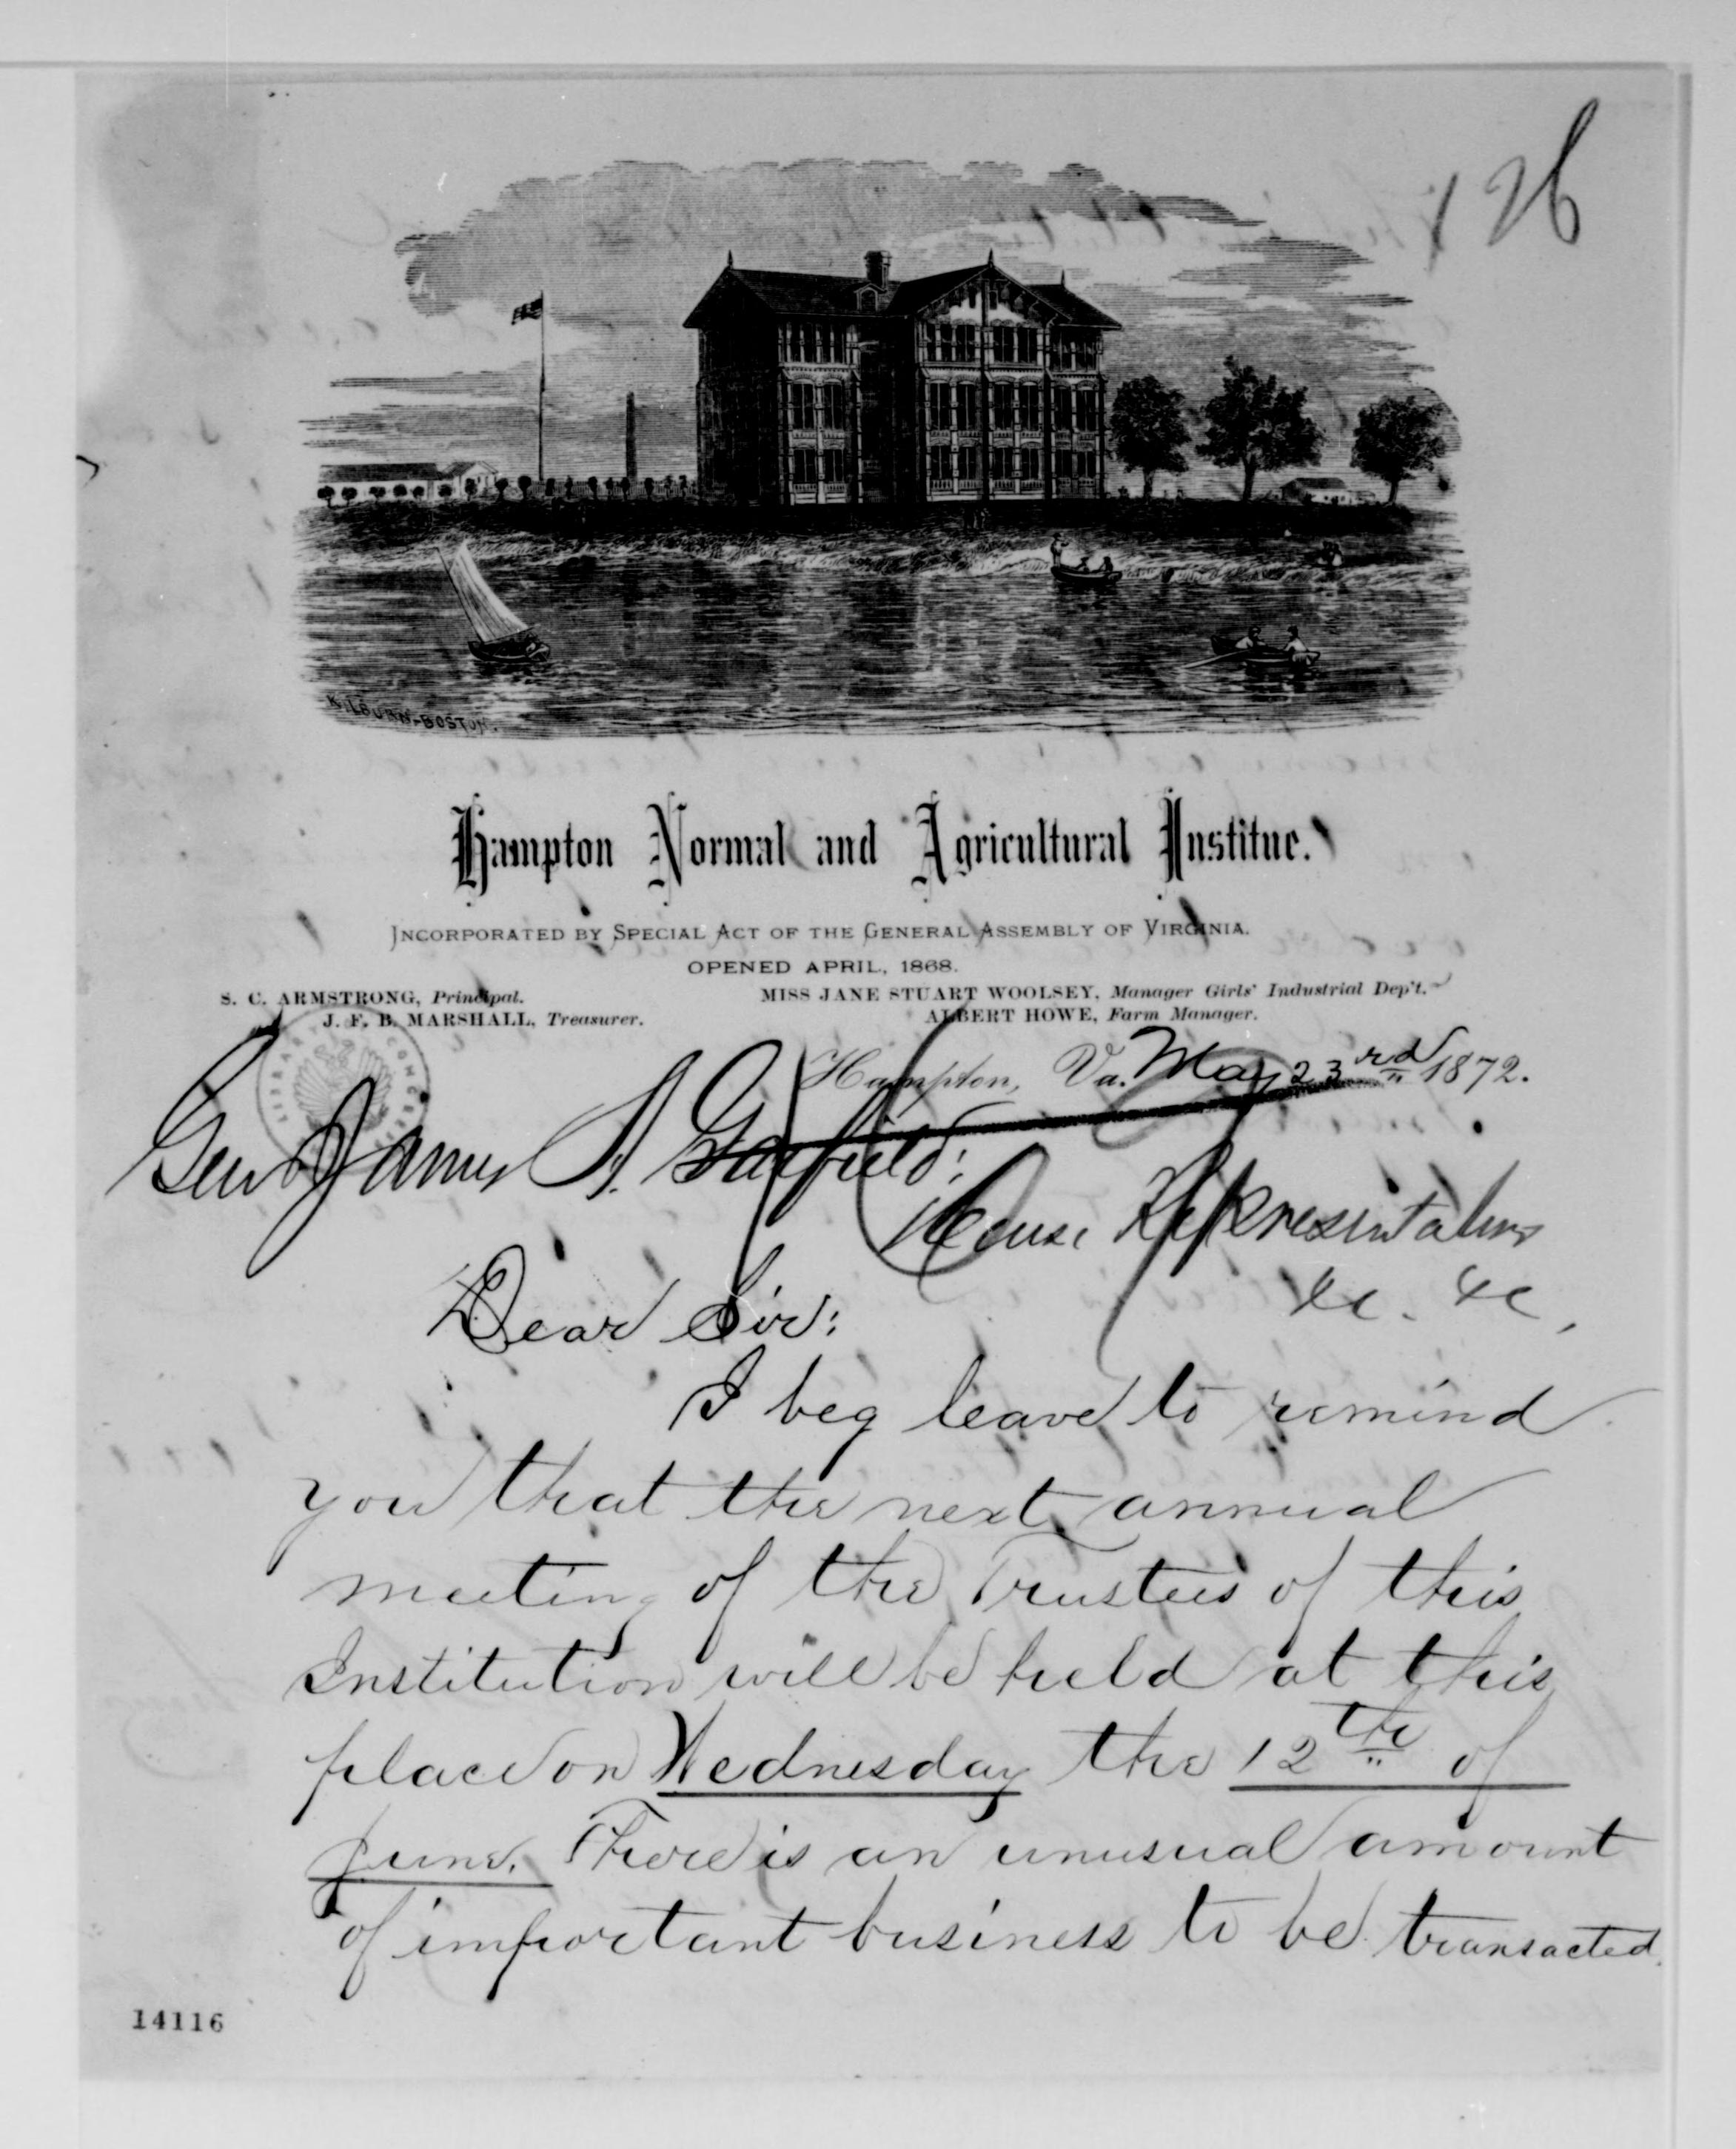 126
KILBURN-BOSTON.
Hampton Normal and Agricultural Institue.
INCORPORATED BY SPECIAL ACT OF THE GENERAL ASSEMBLY OF VIRGINIA.
OPENED APRIL, 1868.
S. C. ARMSTRONG, Principal. MISS JANE STUART WOOLSEY, Manager Girls' Industrial Dep't.
J. F. B. MARSHALL, Treasurer. ALBERT HOWE, Farm Manager.
Hampton, Va. May 23rd 1872.
LIBRARY OF CONGRESS
Genl James A. Garfield:
House Representatives
&c. &c,
Dear Sir:
I beg leave to remind
you that the next annual
meeting of the Trustees of this
Institution will be held at this
place on Wednesday the 12th of
June. There is an unusual amount
of important business to be transacted.
14116